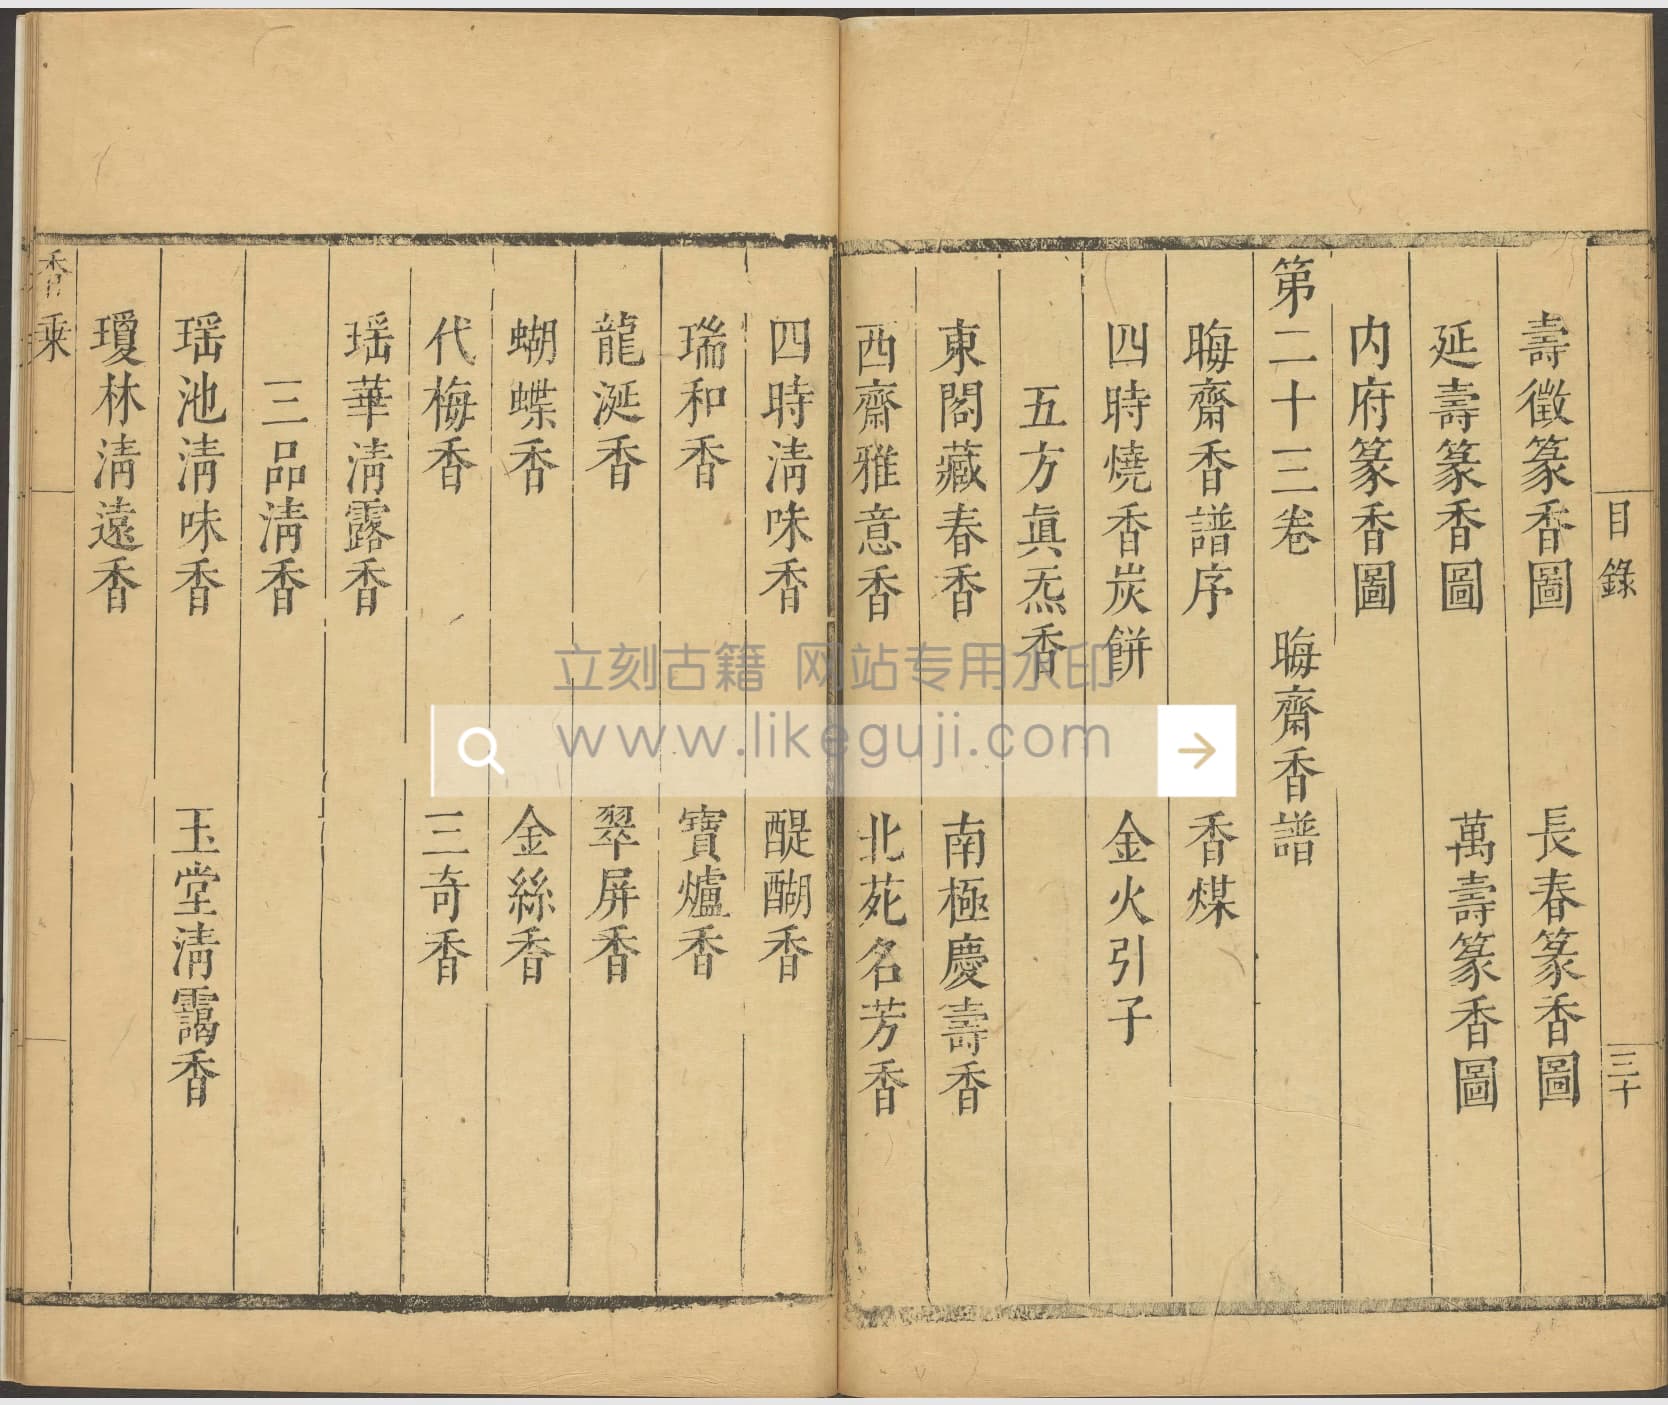 目錄
三十
壽徵篆香圖 長春篆香圖
延壽篆香圖 萬壽篆香圖
内府篆香圖
第二十三卷 晦齋香譜
晦齋香譜序 香煤
四時燒香炭餅 金火引子
五方眞炁香
東閣藏春香 南極慶壽香
西齋雅意香 北苑名芳香
四時淸味香 醍醐香
瑞和香 寶爐香
龍涎香 翠屏香
蝴蝶香 金絲香
代梅香 三奇香
瑶華淸露香
三品淸香
瑶池淸味香 玉堂淸靄香
瓊林淸遠香
香乘
立刻古籍 网站专用水印
www.likeguji.com